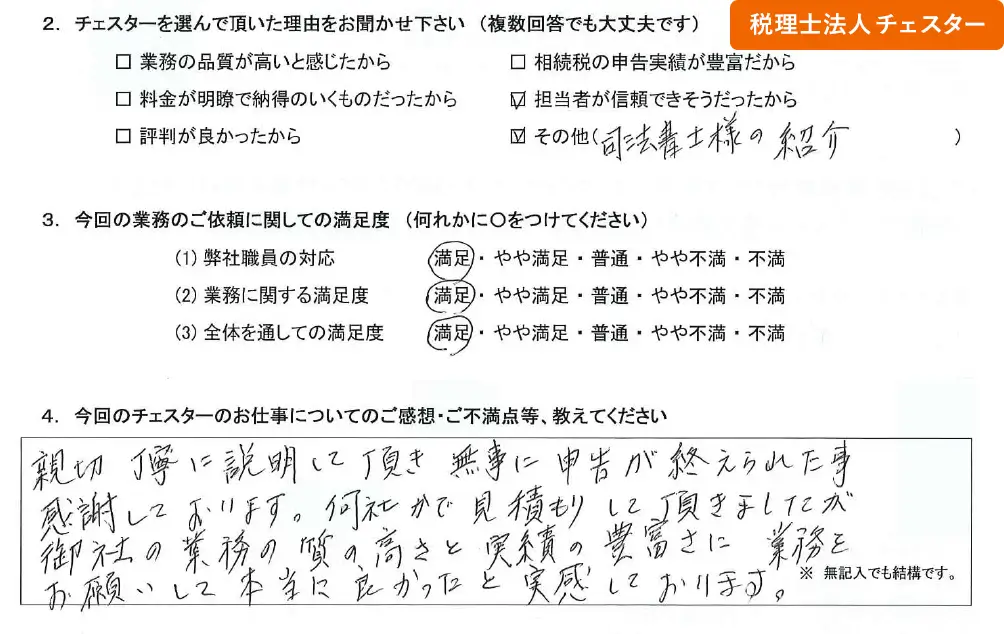 税理士法人チェスター
2. チェスターを選んで頂いた理由をお聞かせ下さい (複数回答でも大丈夫です)
□ 業務の品質が高いと感じたから □ 相続税の申告実績が豊富だから
□ 料金が明瞭で納得のいくものだったから ☑ 担当者が信頼できそうだったから
□ 評判が良かったから ☑ その他(司法書士様の紹介 )
3. 今回の業務のご依頼に関しての満足度 (何れかに〇をつけてください)
(1) 弊社職員の対応 満足・やや満足・普通・やや不満・不満
(2) 業務に関する満足度 満足・やや満足・普通・やや不満・不満
(3) 全体を通しての満足度 満足・やや満足・普通・やや不満・不満
4. 今回のチェスターのお仕事についてのご感想・ご不満点等、教えてください
親切 丁寧に説明して頂き 無事に申告が終えられた事
感謝しております。何社かで見積もりして頂きましたが
御社の業務の質の高さと実績の豊富さに 業務を
お願いして本当に良かったと実感しております。
※ 無記入でも結構です。